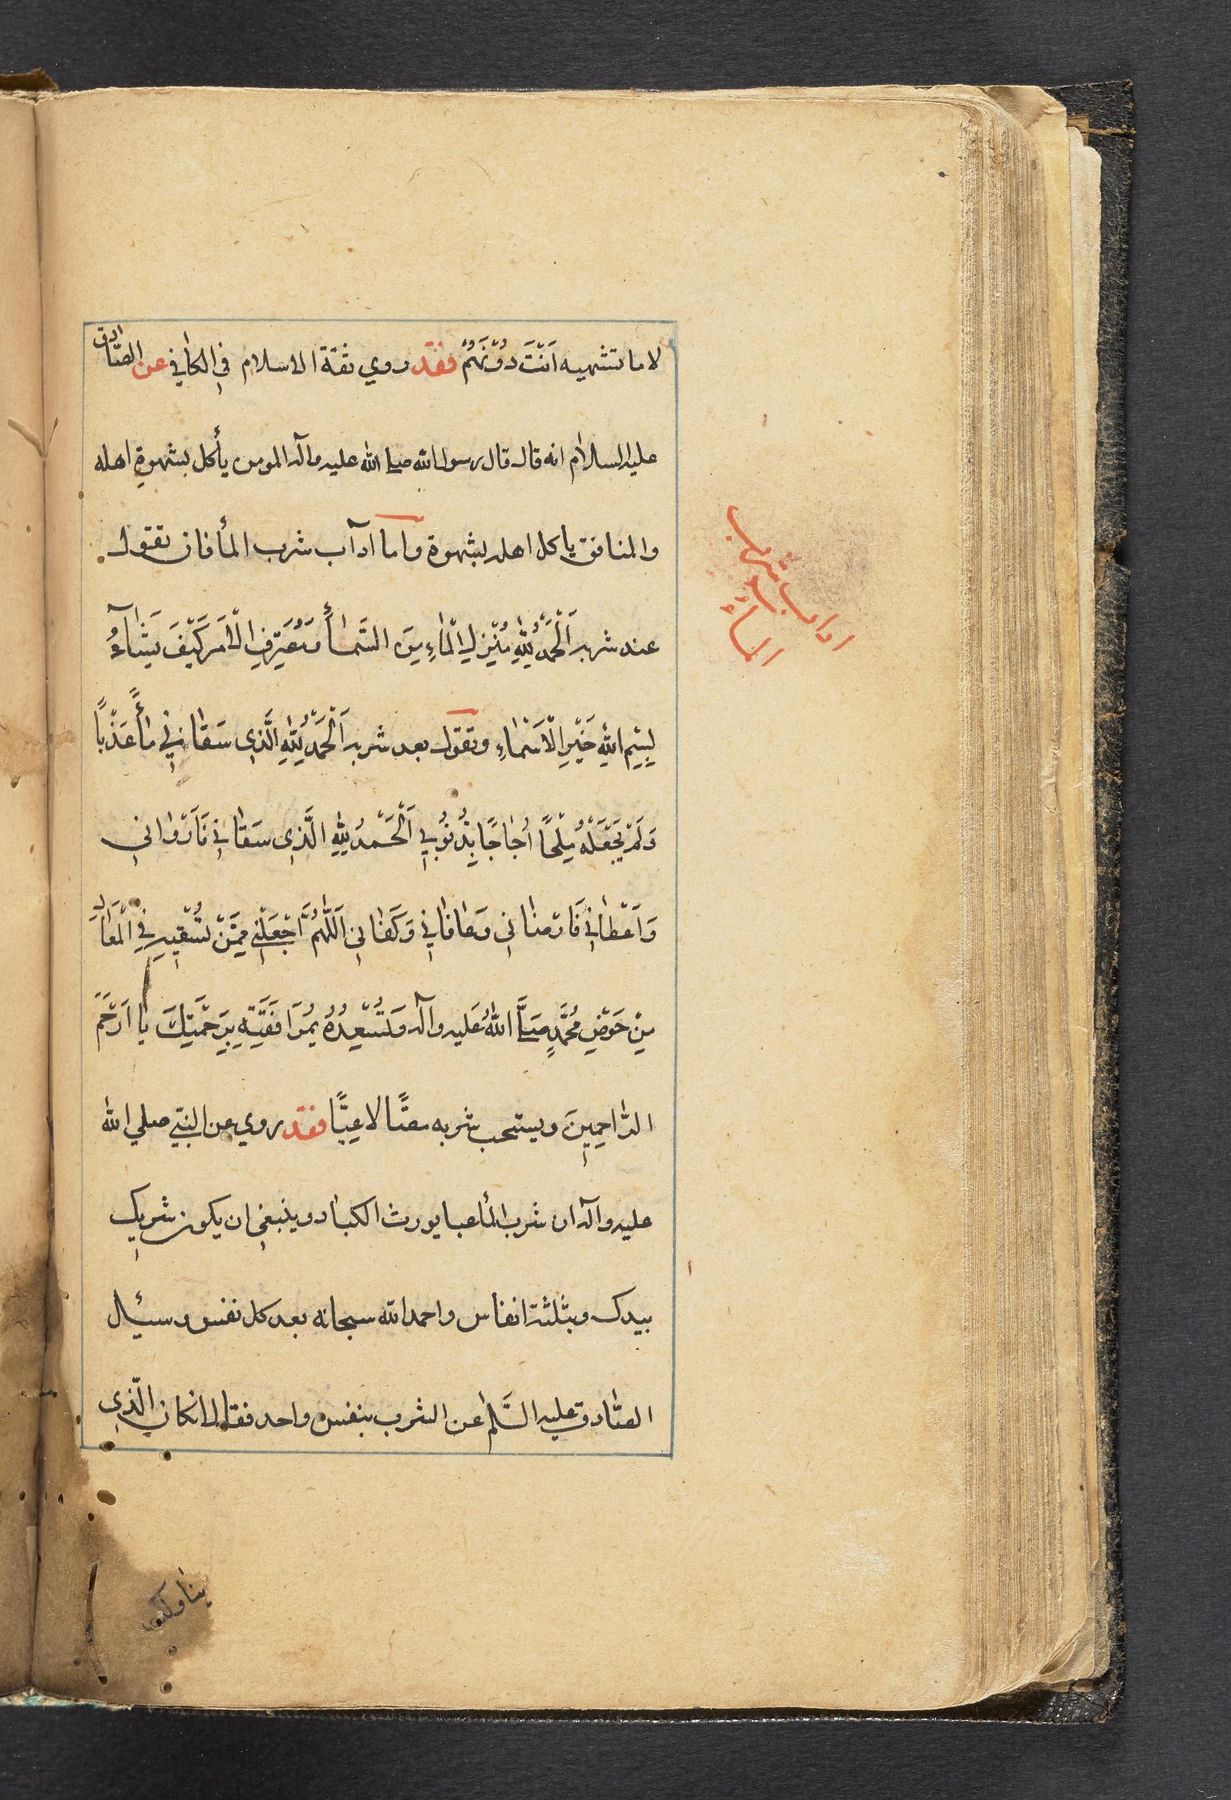 لا ما تشتهيه اَنْتَ دُوْنَهُمْ فقد روي ثقة الاسلام في الكافي عن الصّادق
عليه السلام انه قال قال رسول الله صلى الله عليه وآله المومن يأكل بشهوة اهله
والمنافق ياكل اهله بشهوة واما آداب شرب المأ فان تقول
عند شربه اَلْحَمْدُ لِلّٰهِ مُنْزِلِ الْمٰاءِ مِنَ السَّمٰأِ وَمُصَرِّفِ الْاَمْرِ كَيْفَ يَشٰآءُ
بِسْمِ اللّٰهِ خَيْرِ الْاَسْمٰاءِ وتقول بعد شربه اَلْحَمْدُ لِلّٰهِ الَّذِي سَقٰانِي مٰأً عَذْبًا
وَلَمْ يَجْعَلْهُ مِلْحًا اُجٰاجًا بِذُنُوْبِي اَلْحَمْدُ لِلّٰهِ الَّذِي سَقٰانِي فَاَرْوٰانِي
وَاَعْطٰانِي فَاَرْضٰانِي وَعٰافٰانِي وَكَفٰانِي اَللّٰهُمَّ اجْعَلْنِي مِمَّنْ تُسْقِيهِ فِي الْمَعٰادِ
مِنْ حَوْضِ مُحَمَّدٍ صَلَّى اللّٰهُ عَلَيه وآله وَتُسْعِدُهُ بِمُرٰافَقَتِهِ بِرَحْمَتِكَ يٰا اَرْحَمَ
الرّٰاحِمِينَ ويستحب شربه مصًّا لا عبًّا فقد روي عن النبّي صلي الله
عليه وآله ان شرب المأ عبا يورث الكباد وينبغي ان يكون شربك
بيدك وبثلثة انفاس واحمد الله سبحانه بعد كل نفس وسئل
الصّادق عليه السَّلٰم عن الشرب بنفس واحد فقال ان كان الّذي
يناولك
اداب شرب
الماء